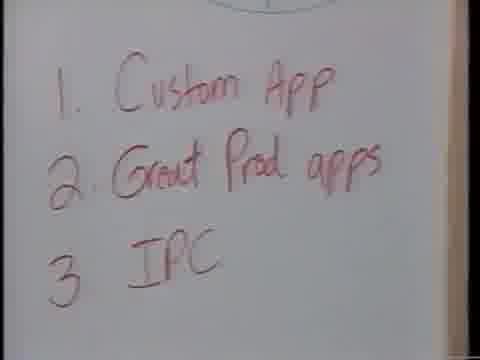 1. Custom App
2. Great Prod apps
3 IPC